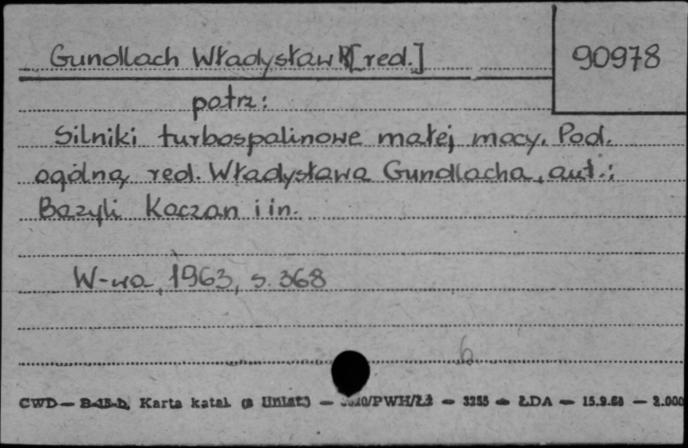 Gundlach Władysław [red.]
90978
patrz:
Silniki turbospalinowe małej mocy. Pod.
ogólną red. Władysława Gundlacha, aut.:
Bazyli Kaczan i in.
W-wa, 1963, s. 368
6
CWD — B-15-b, Karta katal. — /PWH/Łż — 3255 — ŁDA — 15.9.68 — 2.000